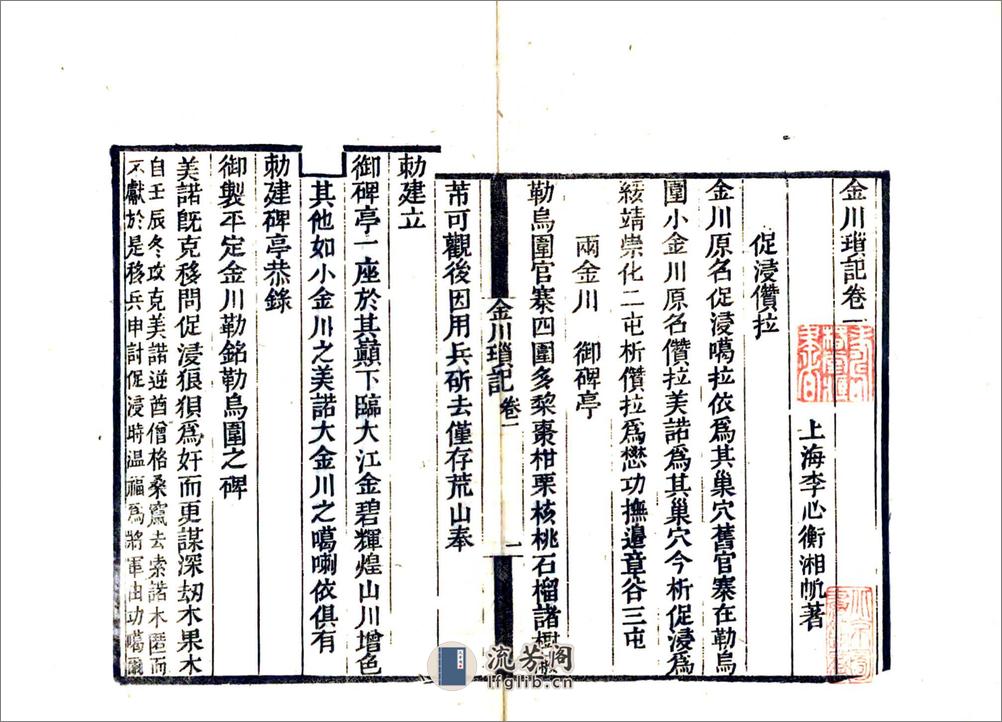 金川瑣記卷一
上海李心衡湘帆著
促浸儹拉
金川原名促浸噶拉依爲其巢穴舊官寨在勒烏
圍小金川原名儹拉美諾爲其巢穴今析促浸爲
綏靖崇化二屯析儹拉爲懋功撫邊章谷三屯
兩金川 御碑亭
勒烏圍官寨四圍多棃棗柑栗核桃石榴諸樹
芾可觀後因用兵斫去僅存荒山奉
金川瑣記 卷一 一
勅建立
御碑亭一座於其巔下臨大江金碧輝煌山川增色
其他如小金川之美諾大金川之噶喇依俱有
勅建碑亭恭錄
御製平定金川勒銘勒烏圍之碑
美諾旣克移問促浸狼狽爲奸而更謀深刧木果木
自壬辰冬攻克美諾逆酋僧格桑竄去索諾木匿而
不獻於是移兵申討促浸時温福爲將軍由功噶爾
流芳閣
lfglib.cn